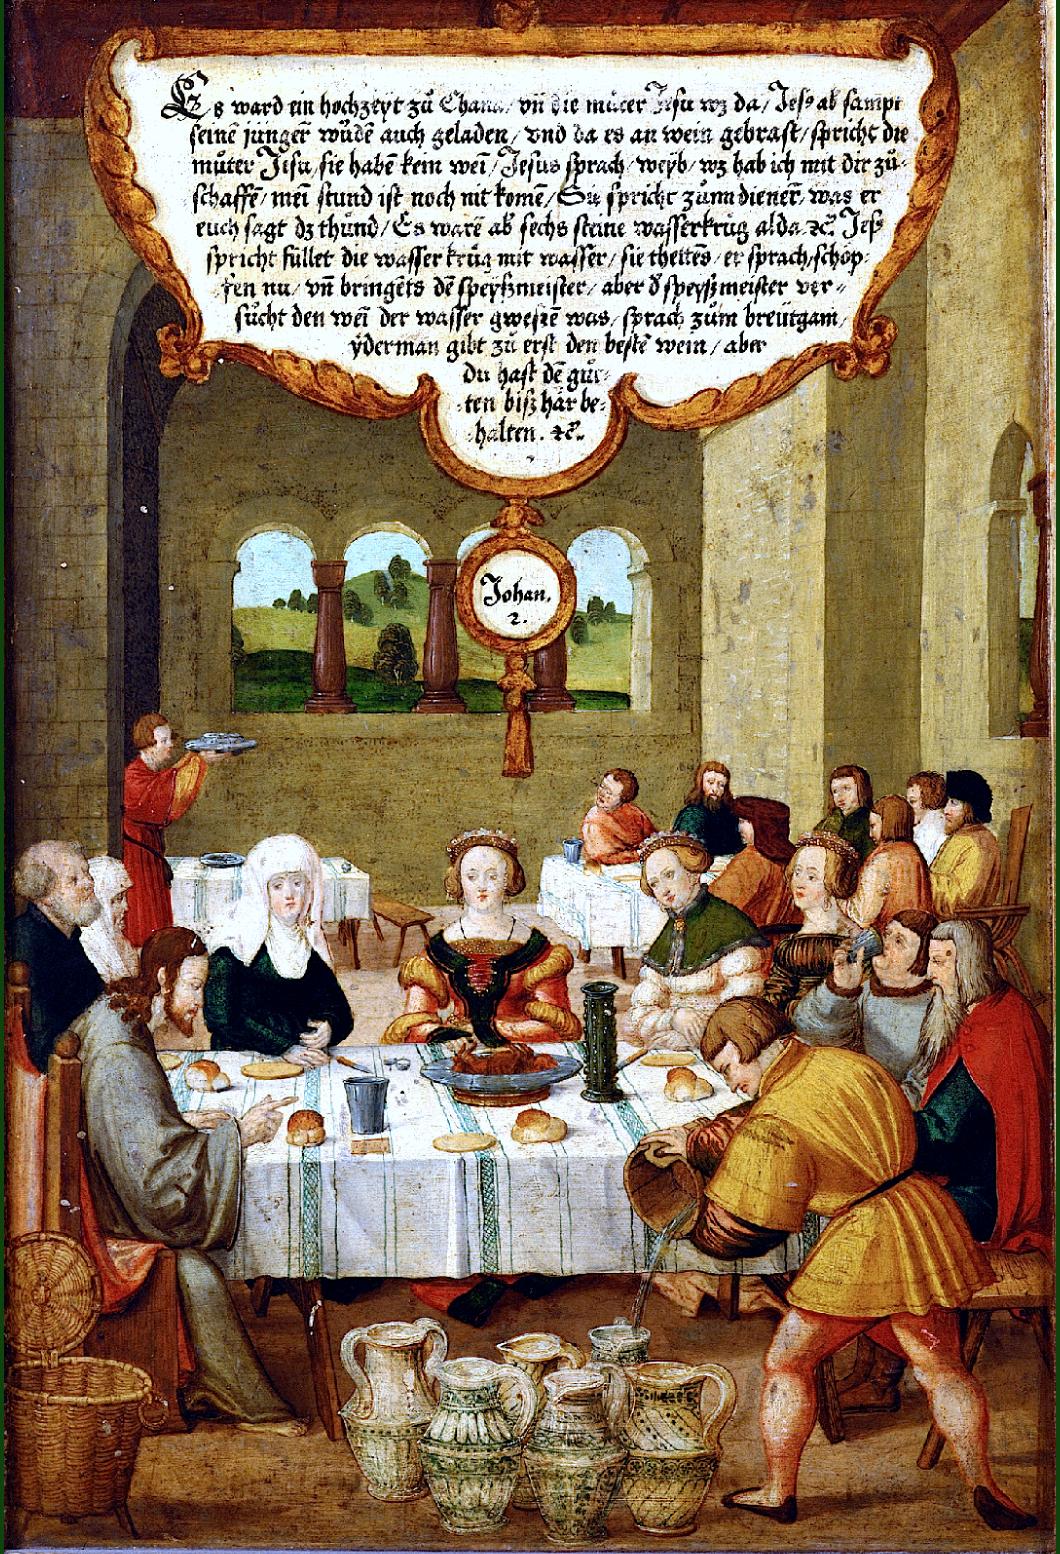 Es ward ein hochzeyt zů Chana/ vn̄ die můter Jesu wz da/ Jesꝰ ab̕ sampt
seinē junger wůdē auch geladen/ vnd da es an wein gebrast/ spricht die
můter Jisu/ sie habē kein wei̅/ Jesus sprach/ weyb/ wz hab ich mit dir zů-
schaffē/ mei̅ stund ist noch nit komē/ Sie spricht zům dienerē, was er
euch sagt dz thůnd/ Es warē ab̕ sechs steine wasserkrüg alda ⁊c̄. Jesꝰ
spricht füllet die wasserkrüg mit wasser/ sie thetēs, er sprach/ schöp-
fen nu/ vn̄ bringēts dē speyßmeister/ aber d̕ speyßmeister ver-
sůcht den wei̅ der wasser gwesen was/ sprach zům breütgam/
yderman gibt zů erst den bestē wein/ aber
du hast dē gů-
ten biß här be-
halten. ⁊c̄.
Johan.
2.